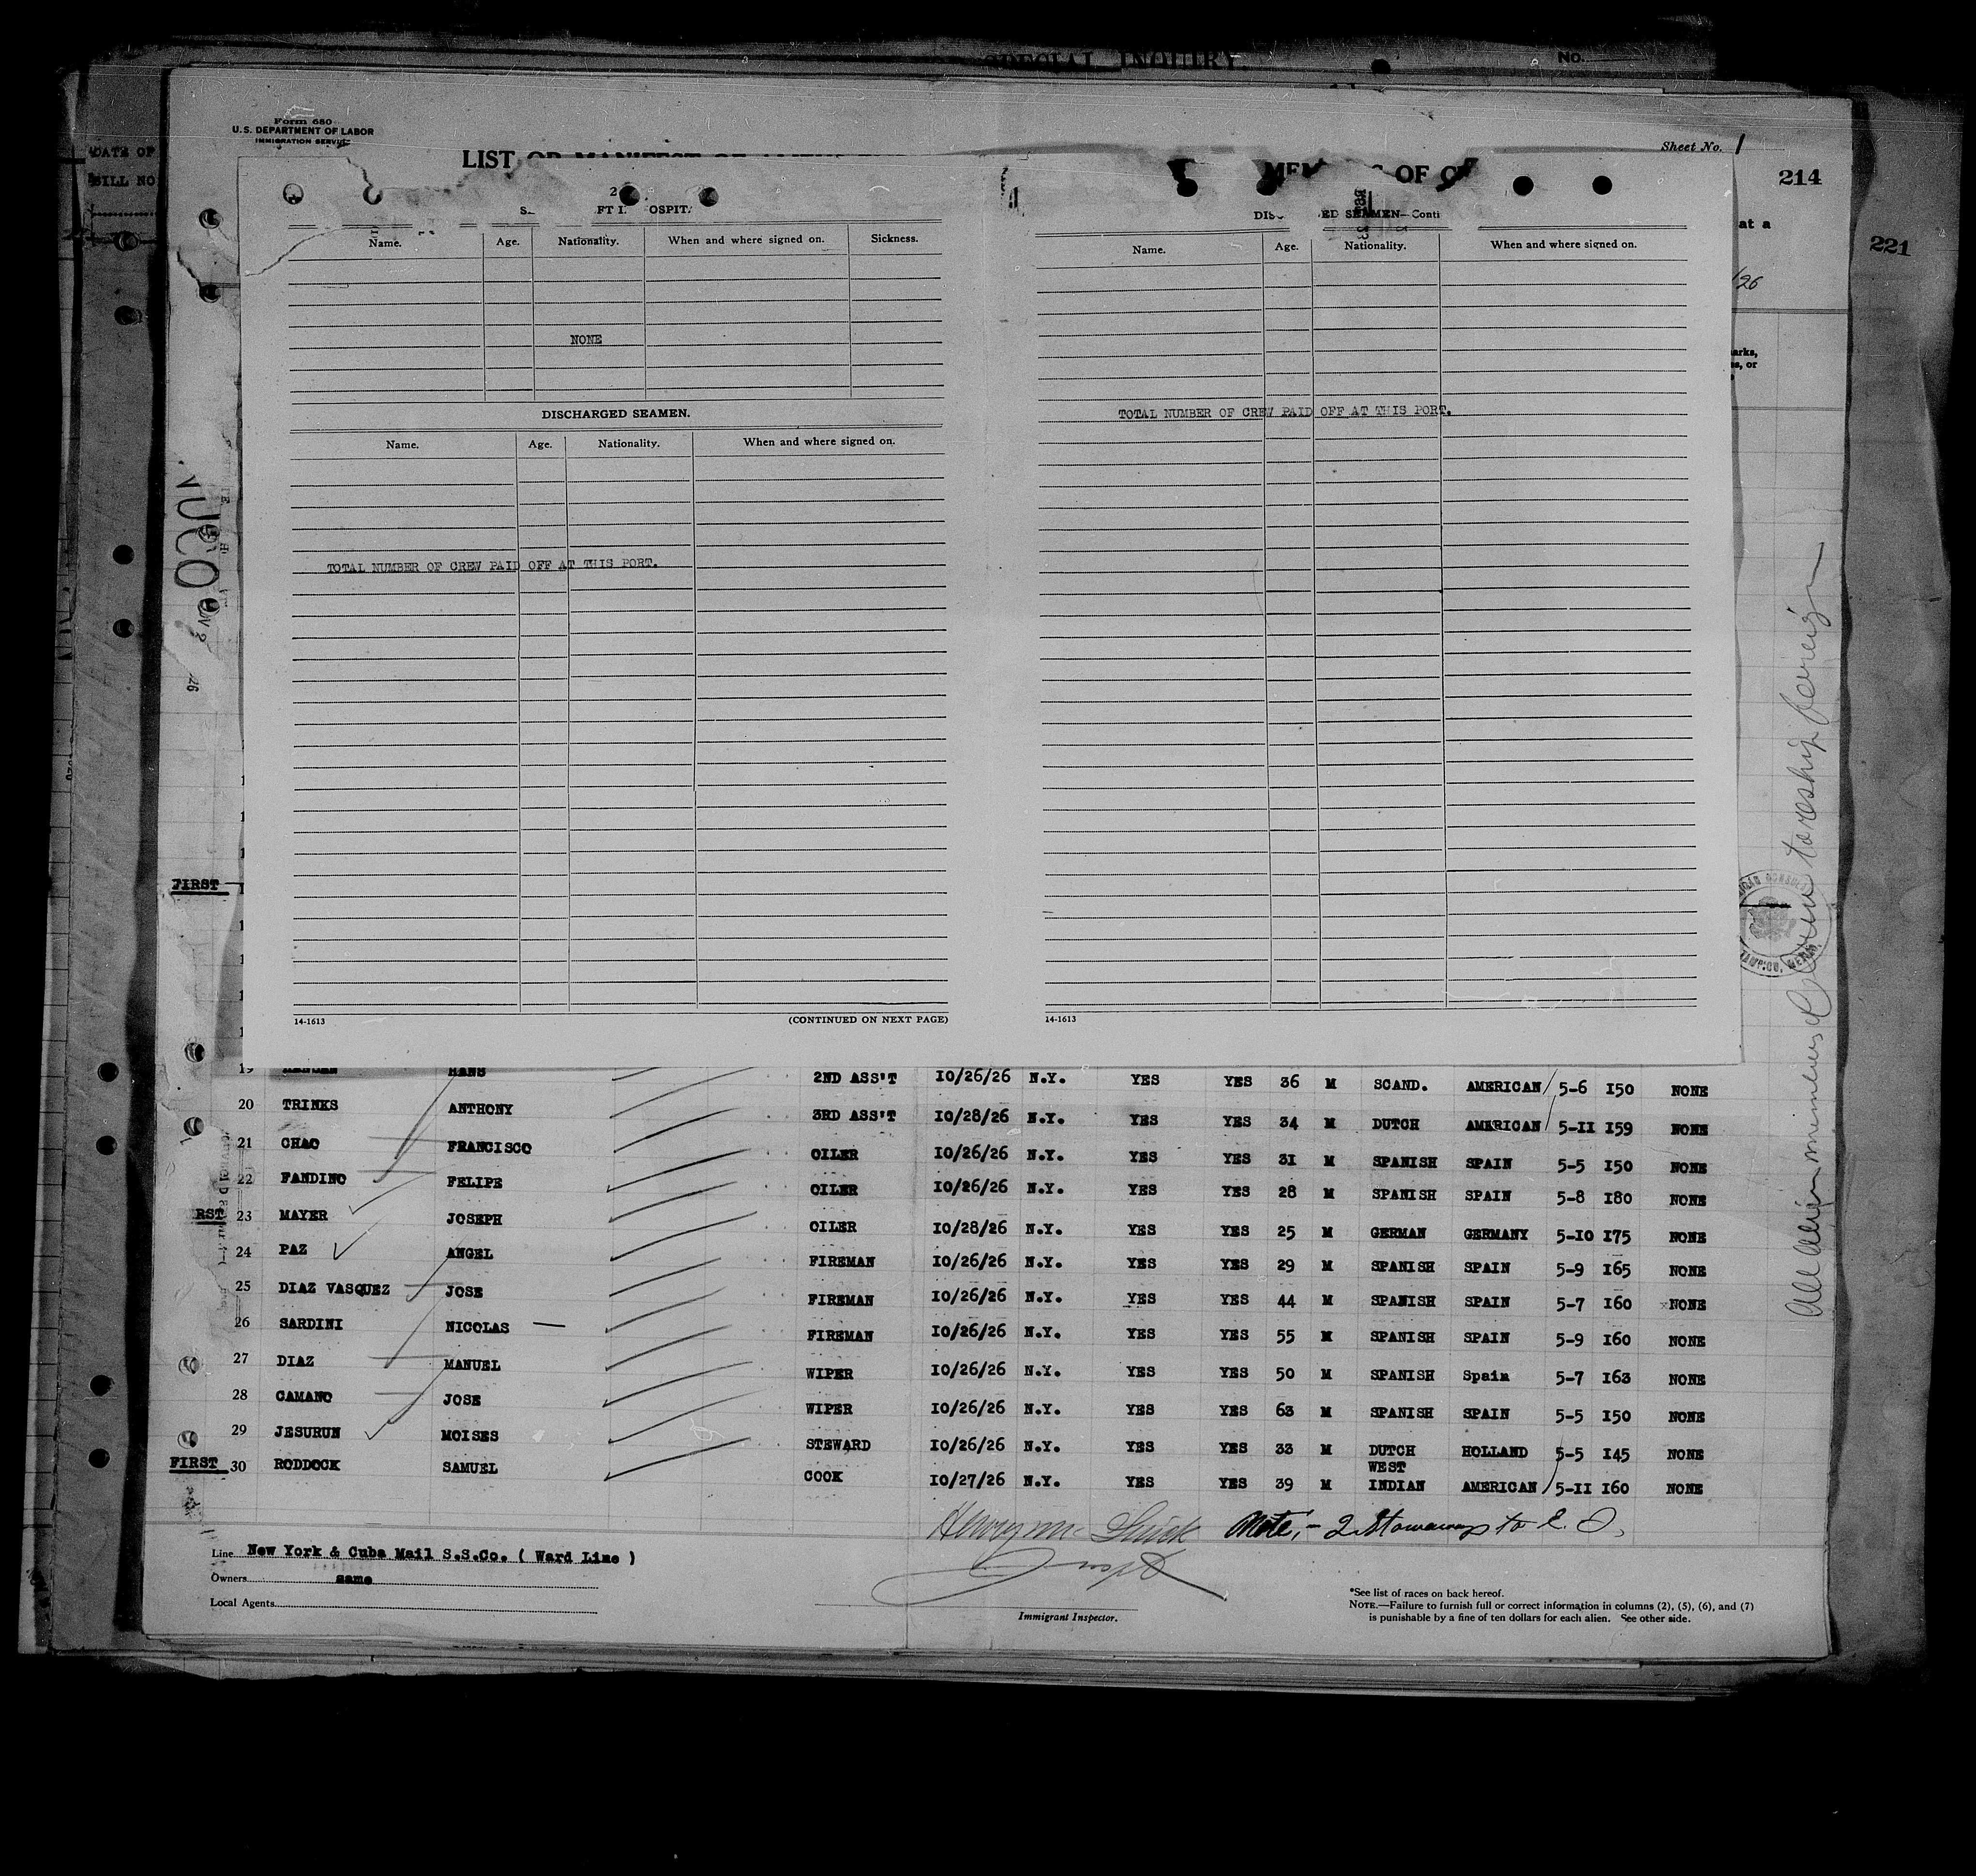 SPECIAL INQUIRY.
No.
Form 680
U.S. DEPARTMENT OF LABOR
IMMIGRATION SERVICE
DATE OF
BILL NO
LIST OR MANIFEST OF
OF
Sheet No. 1
214
221
at a
/26
arks,
es, or
OSPIT
Name. Age. Nationality. When and where signed on. Sickness.
NONE
DISCHARGED SEAMEN.
Name. Age. Nationality. When and where signed on.
TOTAL NUMBER OF CREW PAID OFF AT THIS PORT.
14-1613 (CONTINUED ON NEXT PAGE)
ED SEAMEN—Conti
Name. Age. Nationality. When and where signed on.
TOTAL NUMBER OF CREW PAID OFF AT THIS PORT.
14-1613
FIRST
19 HANS 2ND ASS'T 10/26/26 N.Y. YES YES 36 M SCAND. AMERICAN 5-6 150 NONE
20 TRINKS ANTHONY 3RD ASS'T 10/28/26 N.Y. YES YES 34 M DUTCH AMERICAN 5-11 159 NONE
21 CHAO FRANCISCO OILER 10/26/26 N.Y. YES YES 31 M SPANISH SPAIN 5-5 150 NONE
22 FANDINO FELIPE OILER 10/26/26 N.Y. YES YES 28 M SPANISH SPAIN 5-8 180 NONE
RST 23 MAYER JOSEPH OILER 10/28/26 N.Y. YES YES 25 M GERMAN GERMANY 5-10 175 NONE
24 PAZ ANGEL FIREMAN 10/26/26 N.Y. YES YES 29 M SPANISH SPAIN 5-9 165 NONE
25 DIAZ VASQUEZ JOSE FIREMAN 10/26/26 N.Y. YES YES 44 M SPANISH SPAIN 5-7 160 NONE
26 SARDINI NICOLAS — FIREMAN 10/26/26 N.Y. YES YES 55 M SPANISH SPAIN 5-9 160 NONE
27 DIAZ MANUEL WIPER 10/26/26 N.Y. YES YES 50 M SPANISH Spain 5-7 163 NONE
28 CAMANO JOSE WIPER 10/26/26 N.Y. YES YES 63 M SPANISH SPAIN 5-5 150 NONE
29 JESURUN MOISES STEWARD 10/26/26 N.Y. YES YES 33 M DUTCH HOLLAND 5-5 145 NONE
FIRST 30 RODDOCK SAMUEL COOK 10/27/26 N.Y. YES YES 39 M WEST INDIAN AMERICAN 5-11 160 NONE
Note:- 2 Stowaways to
Line New York & Cuba Mail S.S.Co. ( Ward Line )
Owners same
Local Agents
Immigrant Inspector.
*See list of races on back hereof.
NOTE.—Failure to furnish full or correct information in columns (2), (5), (6), and (7)
is punishable by a fine of ten dollars for each alien. See other side.
All alien members of crew to reship foreign
TAMPICO, MEXICO